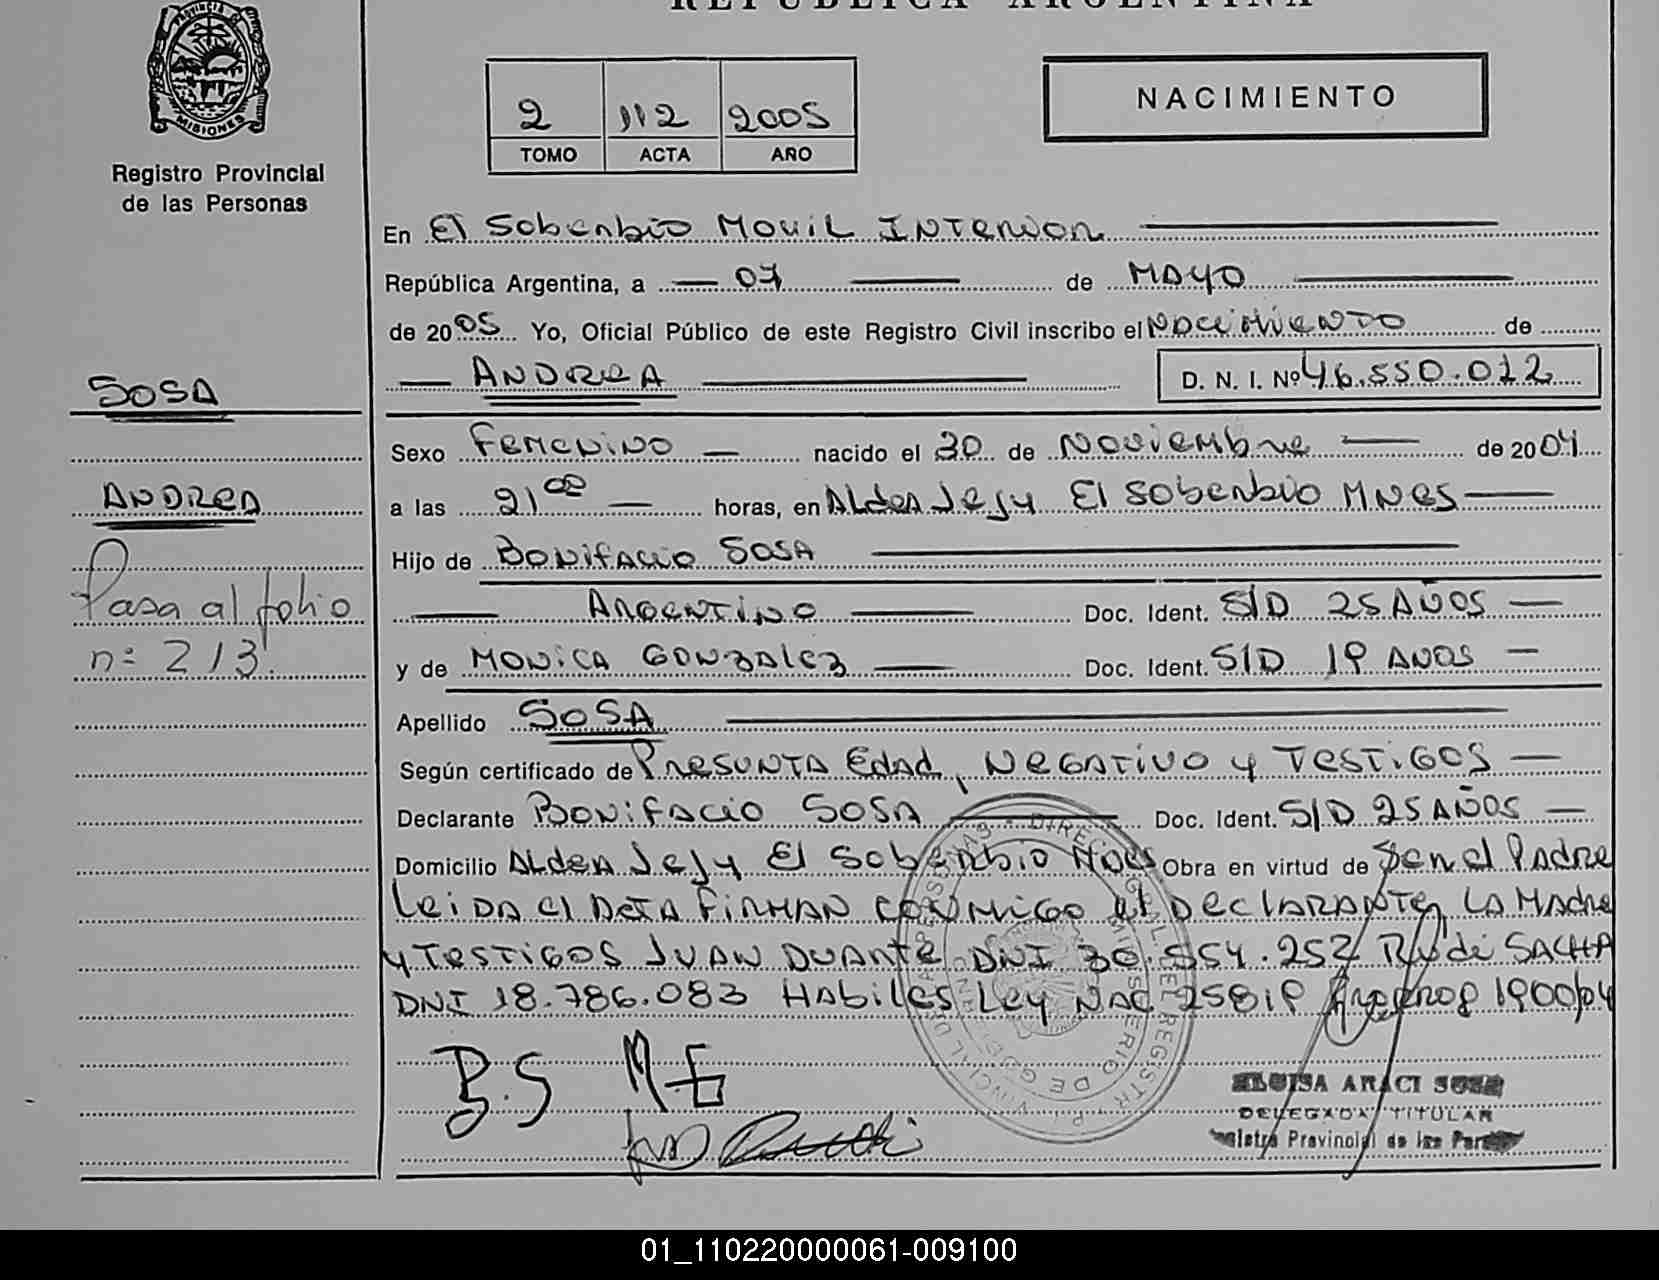 REPUBLICA ARGENTINA
PROVINCIA
MISIONES
Registro Provincial
de las Personas
2 112 2005
TOMO ACTA AÑO
NACIMIENTO
En El Soberbio Movil Interior
República Argentina, a 07 de Mayo
de 2005 Yo, Oficial Público de este Registro Civil inscribo el Nacimiento de
ANDREA D. N. I. Nº 46.550.012
SOSA
ANDREA
Pasa al folio
nº 213.
Sexo Femenino nacido el 30 de Noviembre de 2004
a las 21 00 horas, en Aldea Jejy El Soberbio Mnes
Hijo de Bonifacio SOSA
Argentino Doc. Ident. S/D 25 AÑOS
y de Monica Gonzalez Doc. Ident. S/D 19 Años
Apellido SOSA
Según certificado de Presunta Edad, Negativo y Testigos
Declarante Bonifacio SOSA Doc. Ident. S/D 25 AÑOS
Domicilio Aldea Jejy El Soberbio Mnes Obra en virtud de Ser el Padre
Leida el Acta Firman conmigo el Declarante, La Madre
y Testigos Juan Duarte DNI 30.554.252 SACHA
DNI 18.786.083 Habiles Ley Nac 25819 1900/04
B.S M.E
ELOISA ARACI SOSA
DELEGADA TITULAR
Registro Provincial de las Personas
01_110220000061-009100